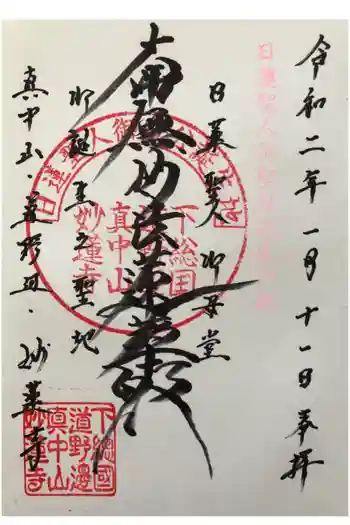 令和二年一月十一日奉拝
日蓮聖人御母堂
南無妙法蓮華経
御誕生之聖地
真中山・道野辺・妙蓮寺
日蓮聖人御
下総国
真中山
妙蓮寺
下總國
道野邊
真中山
妙蓮寺